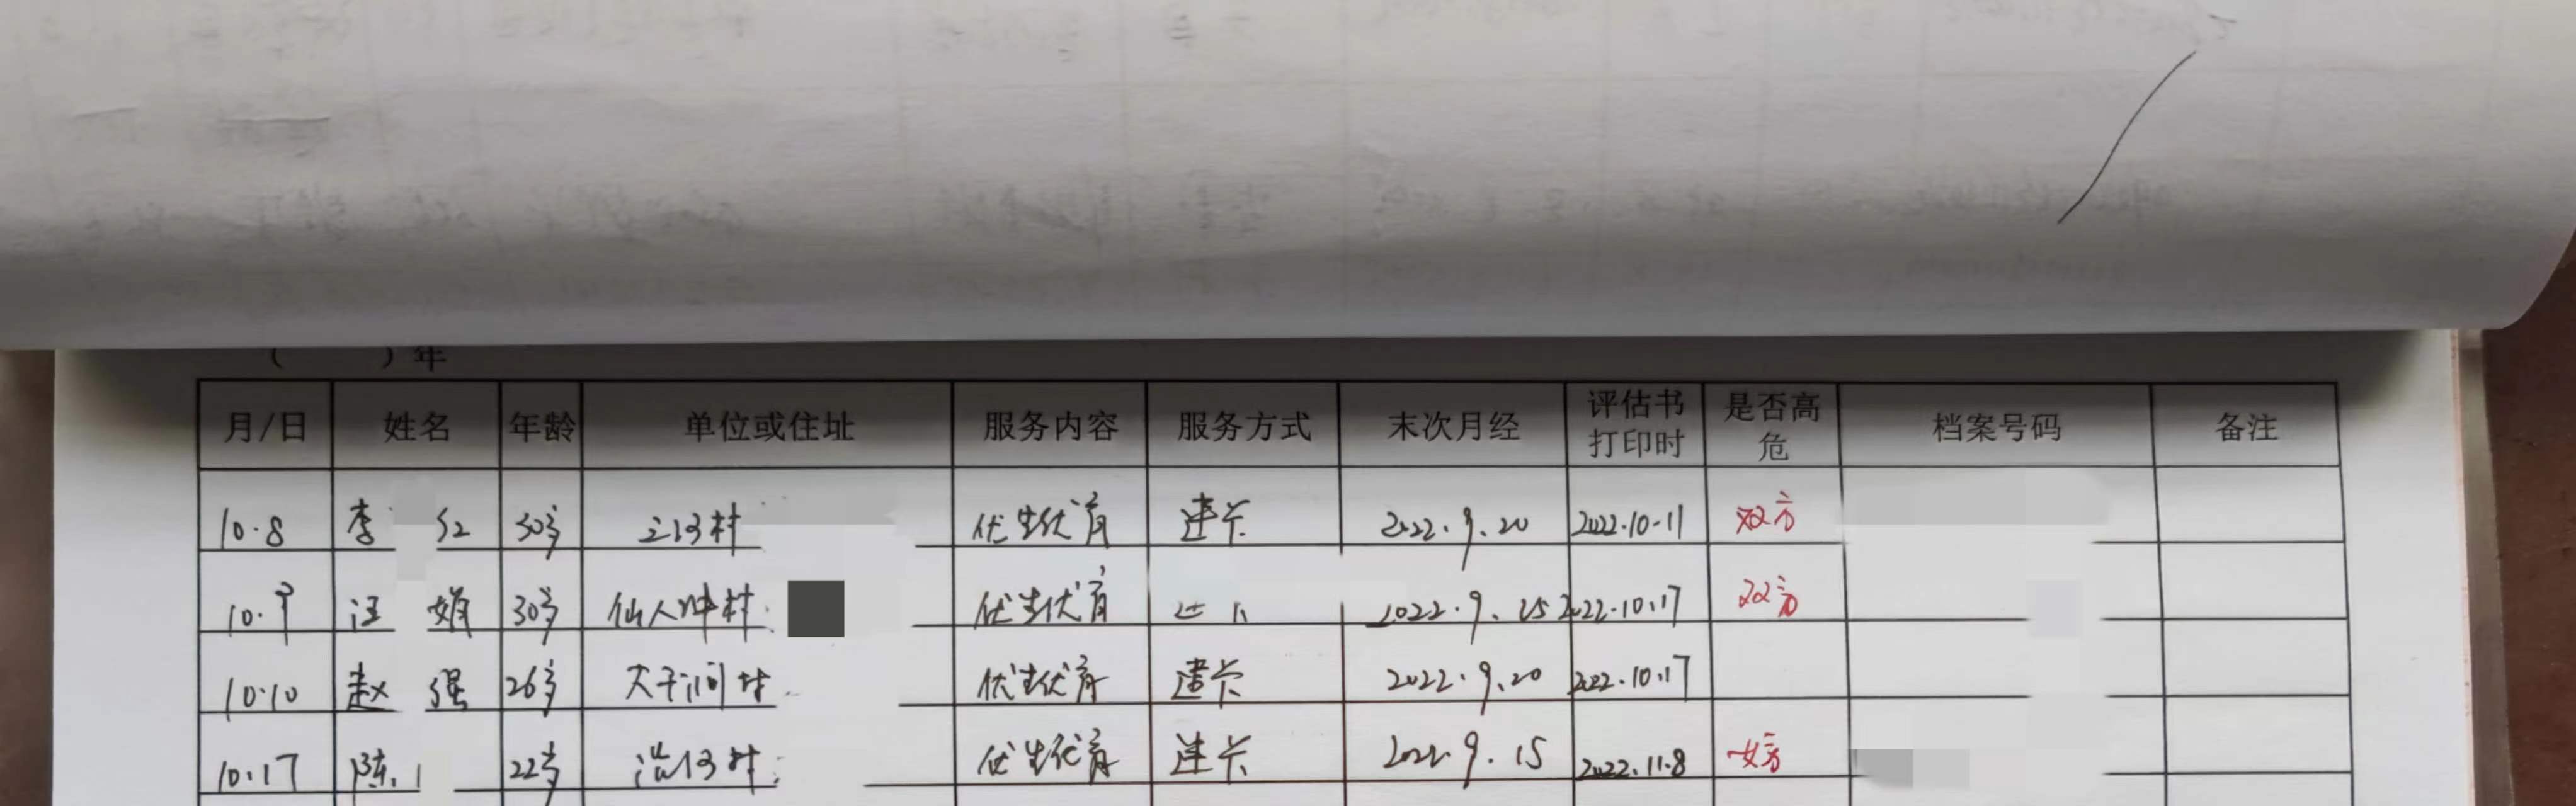 ( ) 年
月/日 姓名 年龄 单位或住址 服务内容 服务方式 末次月经 评估书打印时 是否高危 档案号码 备注
10.8 李 红 30岁 村 优生优育 建卡 2022.9.20 2022.10.11 双方
10.9 汪 娟 30岁 仙人冲村 优生优育 2022.9.25 2022.10.17 双方
10.10 赵 强 26岁 大干涧村 优生优育 建卡 2022.9.20 2022.10.17
10.17 陈 22岁 村 优生优育 建卡 2022.9.15 2022.11.8 女方